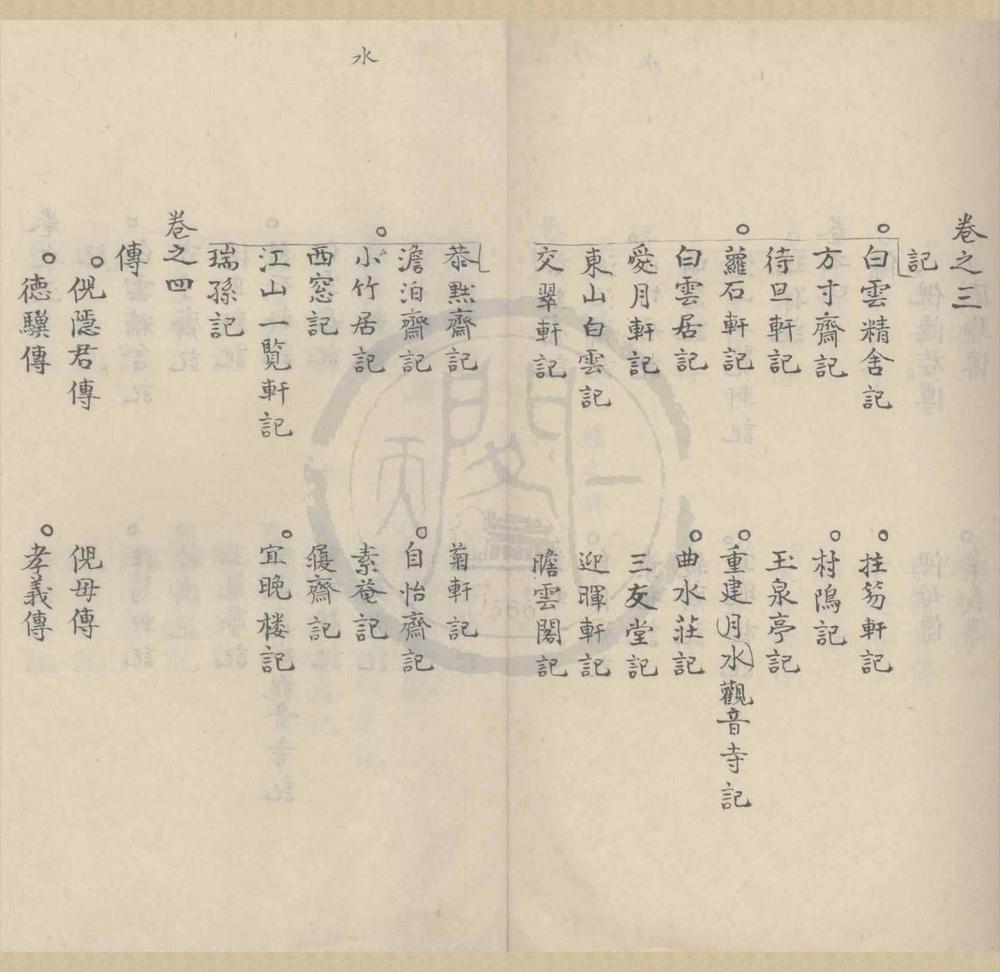 卷之三
記
○白雲精舍記　○拄笏軒記
方寸齋記　○村隖記
待旦軒記　玉泉亭記
○蘿石軒記　○重建月水觀音寺記
白雲居記　○曲水莊記
愛月軒記　三友堂記
東山白雲記　迎暉軒記
交翠軒記　瞻雲閣記
水
恭默齋記　菊軒記
澹泊齋記　○自怡齋記
○小竹居記　素菴記
西窓記　復齋記
江山一覽軒記　○宜晚楼記
瑞孫記
卷之四
傳
○倪隱君傳　倪母傳
○德驥傳　○孝義傳